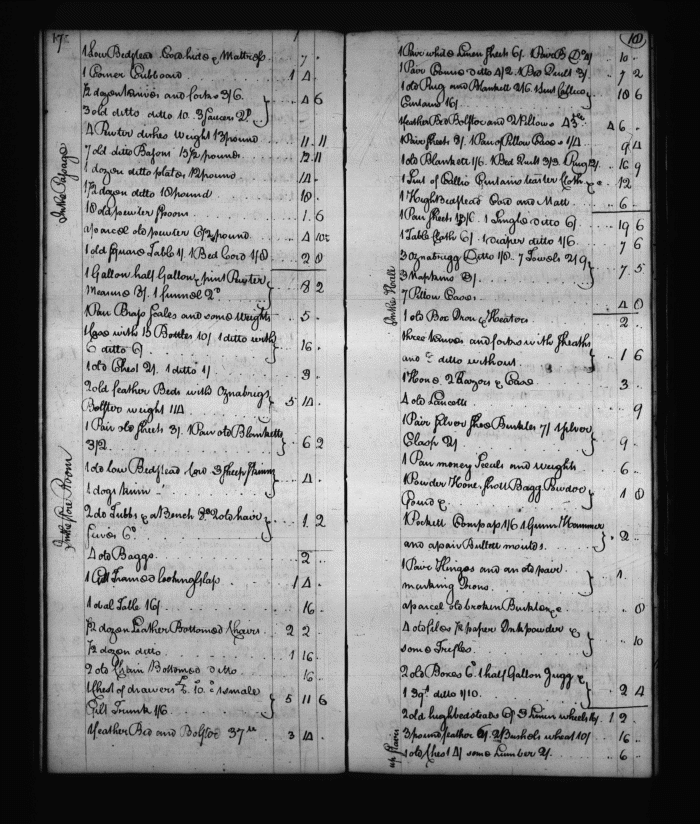 1 Low Bedstead Cord hide & Mattress 7
1 Corner Cubboard 1 4
½ dozen knives and forks 3/6
3 old ditto ditto 10. 3 saucers 2d } 4 6
4 Pewter dishes weight 13 pound 11 11
7 old ditto Basons 13½ pounds 12 11
1 dozen ditto plates 12 pound 14
1½ dozen ditto 18 pound 18
18 old pewter spoons 1 6
a parcel old pewter 6½ pound 4
1 old Square Table 1/. 1 Bed Cord 1/8 2 8
1 Gallon half Gallon & pint Pewter
Measure 3/. 1 funnel 2d } 8 2
1 Pair Brass Scales and some Weights 5
1 Case with 15 Bottles 10/ 1 ditto with
6 ditto 6/ } 16
1 old Chest 2/. 1 ditto 1/ 3
2 old feather Beds with Oznabrigs
Bolster weight 114 } 5 14
1 Pair old sheets 3/. 1 Pair old Blanketts
3/2 } 6 2
1 old Low Bedstead Cord 3 Sheep skins
1 dogs skinn } 4
2 do Tubbs & a Bench 2 old hair
Sieves 6d } 1 2
4 old Baggs 2
1 Gilt Framed looking glass 14
1 oval Table 16/ 16
½ dozen Leather Bottomed Chairs 2 2
½ dozen ditto 1 16
2 old Chain Bottomed ditto 16
1 Chest of drawers £5.10. 1 small
Gilt Trunk 1/6 } 5 11 6
1 feather Bed and Bolster 37 lb 3 14
In the Passage
In the Store Room
1 Pair white Linen sheets 6/. 1 Pair B. Do 4/ 10
1 Pair Brown ditto 4/2. 1 Bed Quilt 3/ 7 2
1 old Rug and Blankett 2/6. 1 Suit Callico
Curtains 16/. } 18 6
feather Bed Bolster and 2 Pillows 43 lb 4 6
1 Pair sheets 8/. 1 Pair of Pillow Cases 1/4 9 4
1 old Blankett 1/6. 1 Bed Quilt 3/3. 16 9
1 Suit of Callico Curtains teaster Cloth 12
1 High Bedstead Cord and Matt 6
1 Pair sheets 13/6. 1 Single ditto 6/ 19 6
1 Table Cloth 6/. 1 diaper ditto 1/6 7 6
3 Oznabrigg Ditto 1/8. 7 Towels 2/9
3 Napkins 3/. } 7 5
7 Pillow Cases 4 8
1 old Box Iron & Heators 2
three knives and forks with sheaths
and ditto without } 1 6
1 Hone. 2 Razors & Case 3
4 old Lancetts 9
1 Pair Silver Shoe Buckles 7/ 1 Silver
Clasp 2/ } 9
1 Pair money Scales and Weights 6
1 Powder Horn, shott Bagg Powder
Pound &c. } 1 8
1 Pockett Compass 1/6 1 Gunn Hammer
and a pair Bullett moulds } 2
1 Pair Hinges and an old pair
marking Irons } 1
a parcel old broken Buckles &c 8
4 old files ½ paper Ink powder &
some Trifles } 10
2 old Boxes 6d 1 half Gallon Jugg &
1 3qt ditto 1/10 } 2 4
2 old high bedsteads 6/ 3 Linen wheels 1 2
3 pound feather 6/. 2 Bushels wheat 10/ 16
1 old Chest 4/ some Lumber 2/. 6
In the Hall
up Stairs